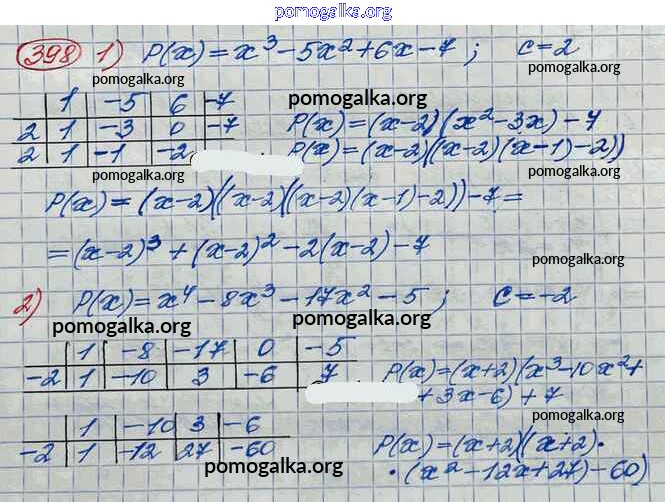 pomogalka.org
398 1) P(x) = x³ – 5x² + 6x – 7; c = 2
pomogalka.org
pomogalka.org
1 –5 6 –7
2 1 –3 0 –7 P(x) = (x–2)(x²–3x) – 7
2 1 –1 –2 P(x) = (x–2)((x–2)(x–1)–2))
pomogalka.org
pomogalka.org
P(x) = (x–2)((x–2)((x–2)(x–1)–2))–7 =
= (x–2)³ + (x–2)² – 2(x–2) – 7
pomogalka.org
2) P(x) = x⁴ – 8x³ – 17x² – 5; c = –2
pomogalka.org
pomogalka.org
1 –8 –17 0 –5
–2 1 –10 3 –6 7 P(x) = (x+2)(x³–10x²+
+ 3x–6) + 7
pomogalka.org
1 –10 3 –6
–2 1 –12 27 –60 P(x) = (x+2)((x+2)·
·(x²–12x+27)–60)
pomogalka.org
pomogalka.org